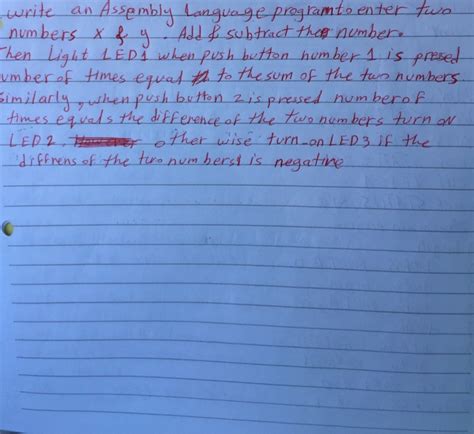 write an Assembly Language program to enter two
numbers x & y . Add & subtract the number.
Then Light LED1 when push button number 1 is presed
umber of times equal to the sum of the two numbers
similarly, when push button 2 is presed number of
times equals the difference of the two numbers turn on
LED2. other wise turn-on LED3 if the
diffrens of the two numbers is negative